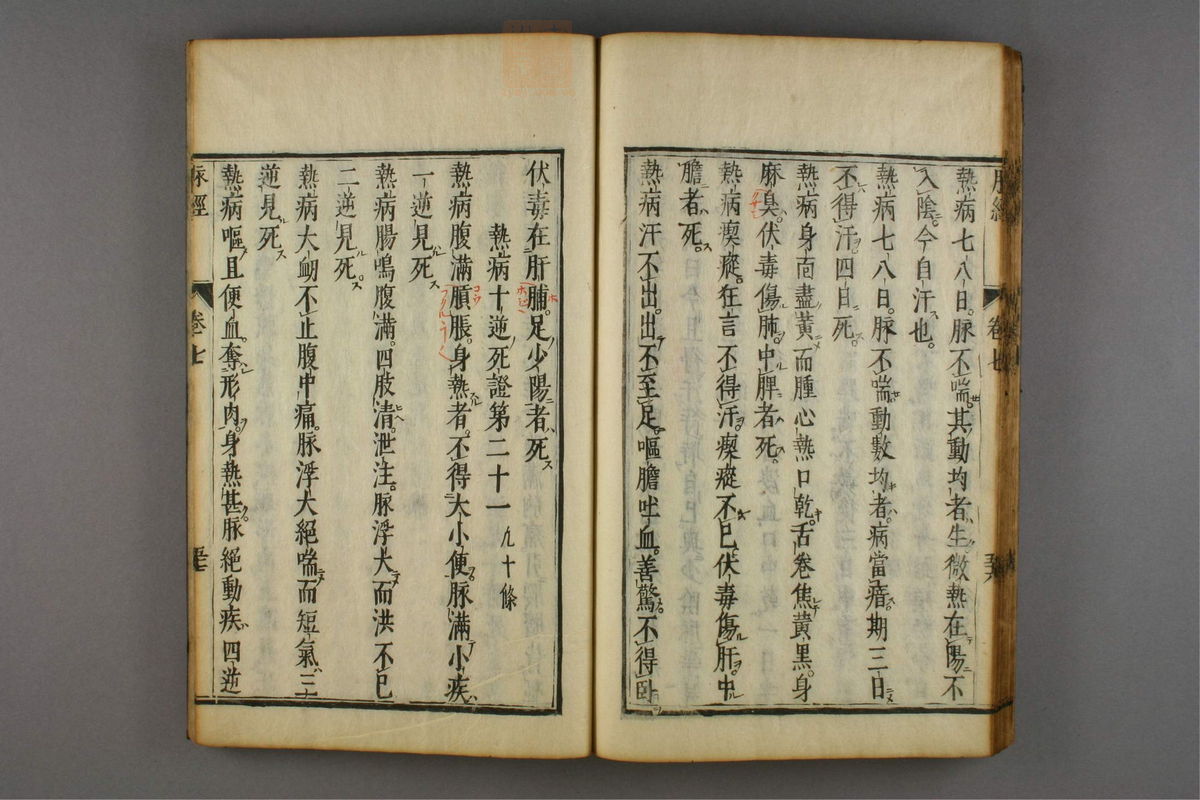 脉經
卷七
熱病七八日脉不喘其動均者生微熱在陽不
入陰今自汗也
熱病七八日脉不喘動數均者病當瘖期三日
不得汗四日死
熱病身面盡黃而腫心熱口乾舌卷焦黃黑身
麻臭伏毒傷肺中脾者死
熱病瘈瘲狂言不得汗瘈瘲不已伏毒傷肝中
膽者死
熱病汗不出出不至足嘔膽吐血善驚不得臥
伏毒在肝腑足少陽者死
熱病十逆死證第二十一
熱病腹滿䐜脹身熱者不得大小便脉滿小疾
一逆見死
熱病腸鳴腹滿四肢清泄注脉浮大而洪不已
二逆見死
熱病大衂不止腹中痛脉浮大絕喘而短氣三
逆見死
熱病嘔且便血奪形肉身熱甚脉絕動疾四逆
脉經
卷七